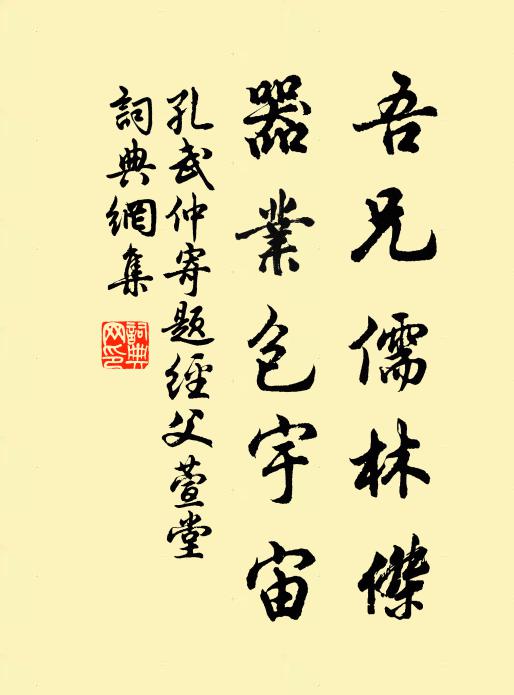 吾兄儒林傑
器業包宇宙
孔武仲寄題經父萱堂
詞典網集
詞典網印